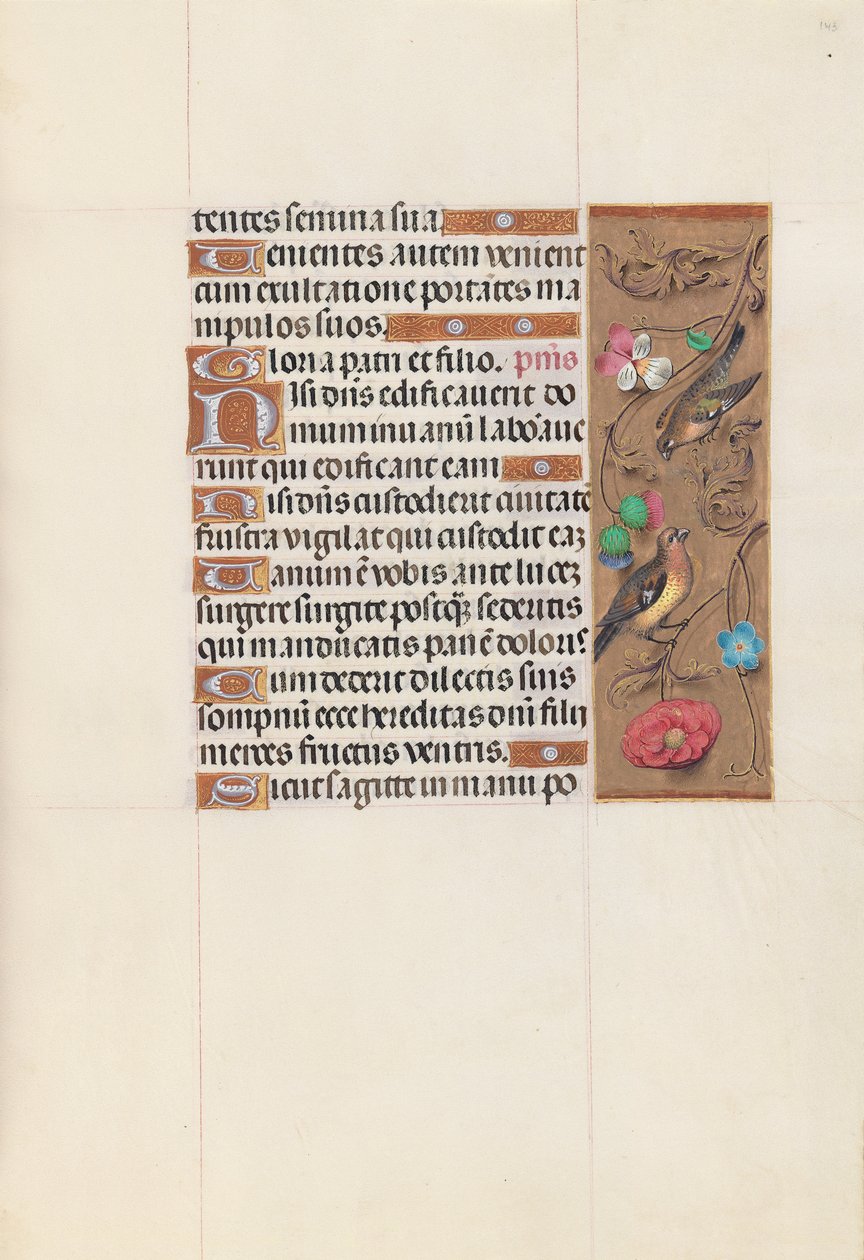 143
tentes semina sua
Uenientes autem venient
cum exultatione portātes ma
nipulos suos.
Gloria patri et filio. pm̄s
Nisi dn̄s edificauerit do
mum in uanū labōraue
runt qui edificant eam
Nisi dn̄s custodierit ciuitatē
frustra vigilat qui custodit eaꝫ
Uanum ē vobis ante luceꝫ
surgere surgite postqꝫ̄ sederitis
qui manducatis panē doloris
Cum dederit dilectis suis
sompnū ecce hereditas dn̄i filij
merces fructus ventris.
Sicut sagitte in manu po